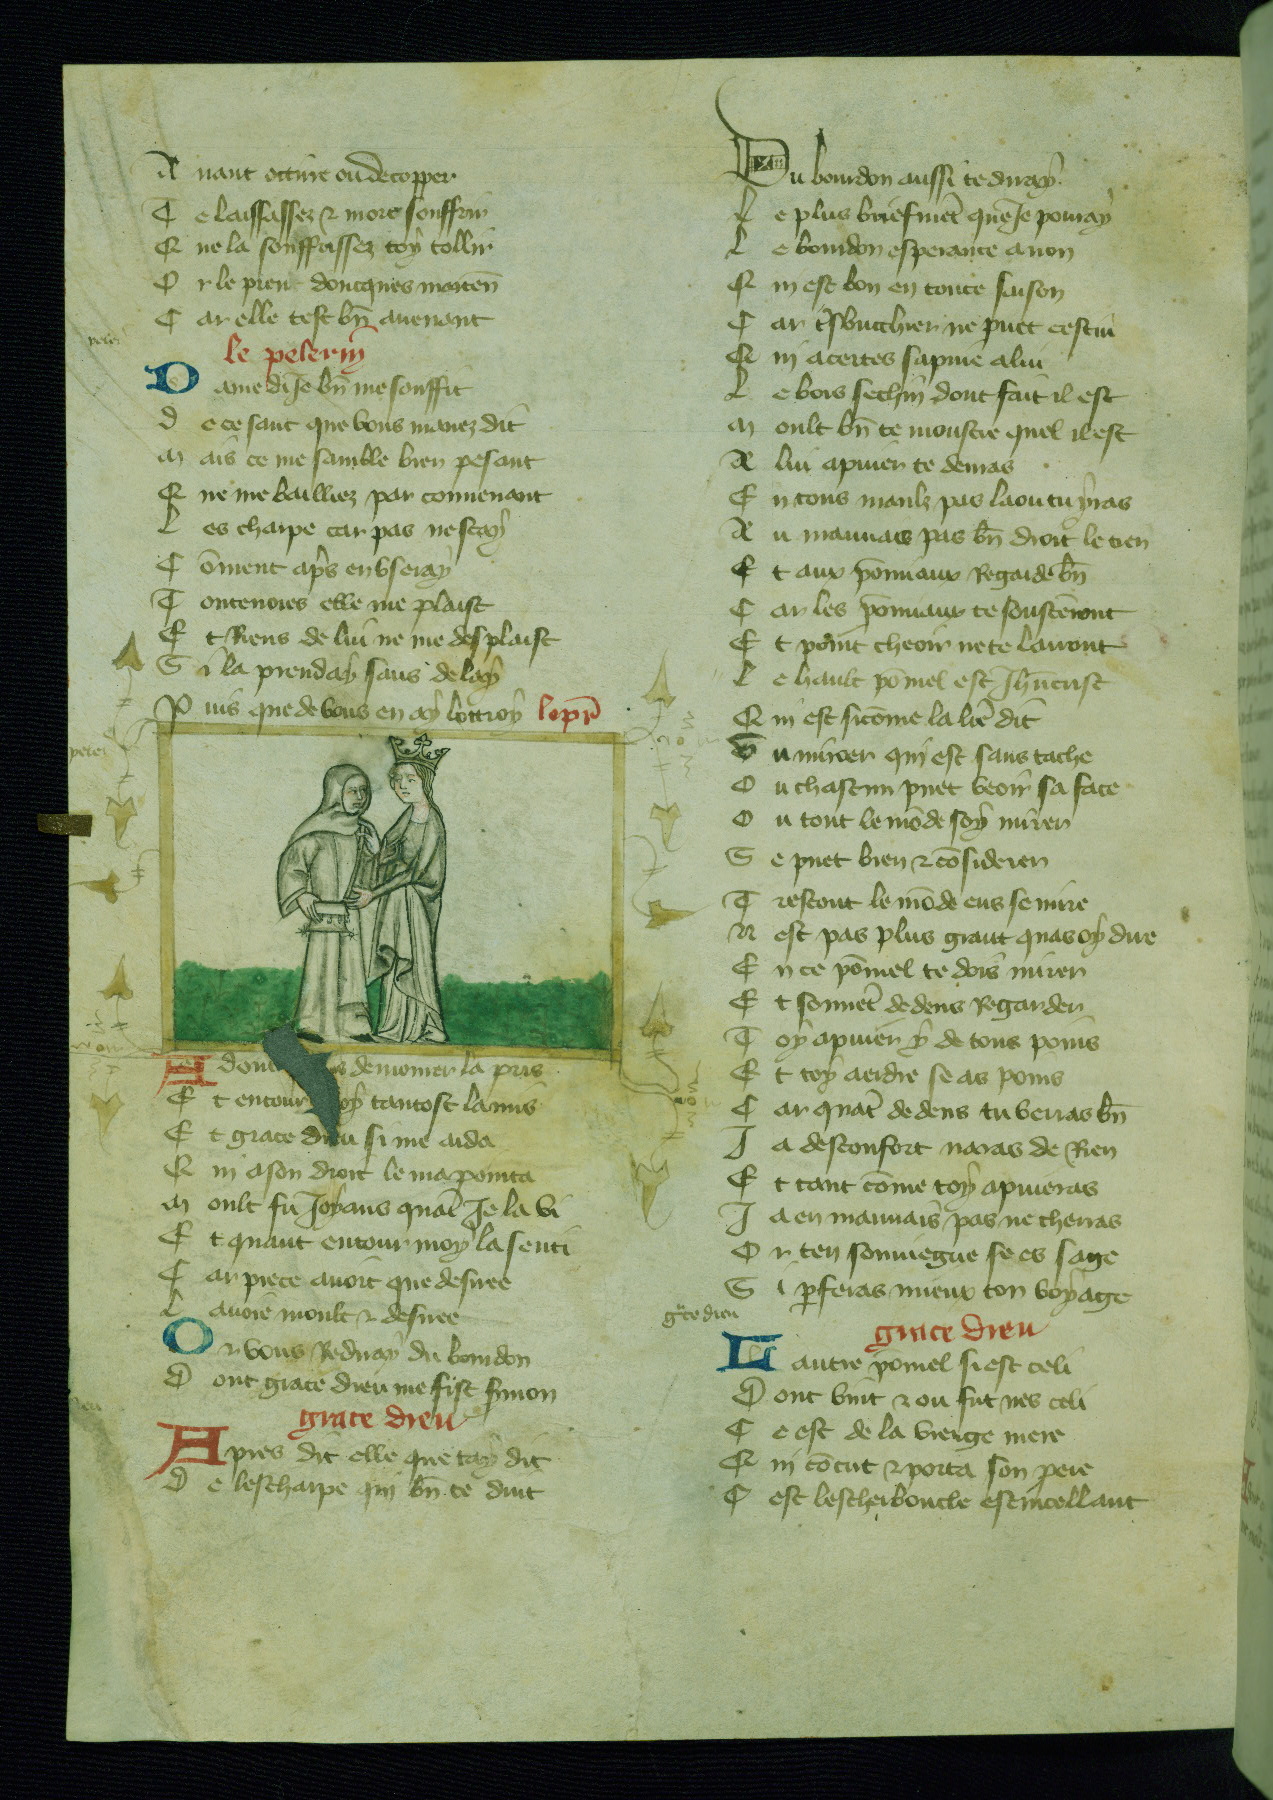 A uant occire ou decopper
C e laissassez ⁊ mort souffrir
Q ne la souffrissez toy tollir
O r le pren doncques maitēn
C ar elle test bn̄ auenant
le pelerin
D ame di Je bn̄ me souffit
D e ce sant que vous mauez dit
M ais ce me samble bien pesant
Q ne me bailliez par conuenant
L es charpe car pas ne scay
C ōment aprs̄ en vseray
T outeuoies elle me plaist
E t Riens de lui ne me desplaist
S i la prenday sans delay
P uis que de vous en ay lottroy lepr̄
A donc s demourer la pris
E t entour oy tantost la mis
E t grace dieu si me aida
Q ui a son droit le ma pointa
M oult fu Joyans quat̄ Je la vi
E t quant entour moy la senti
C ar piece auoit que desiree
L auoie moult ⁊ desiree
O r vous Rediray du bourdon
D ont grace dieu me fist s̄mon
grace dieu
A pres dit elle que tay dit
D e lescharpe qui bn̄ te duit
D u bourdon aussi te diray
L e plus briefmēt que Je pouray
L e bourdon esperance a non
Q ui est bon en toute saison
C ar tsbucchier ne puet cestui
Q ui acertes sapuie a lui
L e bois sechin dont fait il est
M oult bn̄ te moustre quel il est
A lui apuier te deuras
E n tous maulz pas la ou tu yras
A u mauuais pas bn̄ droit le tien
E t aux pōmiaux Regarde bn̄
C ar les pōmiaux te soustēront
E t point cheoir ne te lairont
L e hault pōmel est Jhūcrist
Q ui est sicōme la lrē dit
U n miroer qui est sans tache
O u chascun puet veoir sa face
O u tout le mōde soy mirer
S e puet bien ⁊ cōsiderer
T restout le mōde ens se mire
N est pas plus grant quas oy dire
E n ce pōmel te dois mirer
E t souuēt dedens Regarder
T oy apuier y de tous poins
E t toy aerdre se as poins
C ar quāt dedens tu verras bn̄
J a desconfort naras de Rien
E t tant cōme toy apuieras
J a en mauuais pas ne cherras
O r ten souuiegne se es sage
S i pferas mieux ton voyage
gr̄ce dieu
grace dieu
L autre pomel si est celi
D ont vint ⁊ ou fut nes celi
C e est de la vierge mere
Q ui cōcut ⁊ porta son pere
C est lescherboucle estincellant